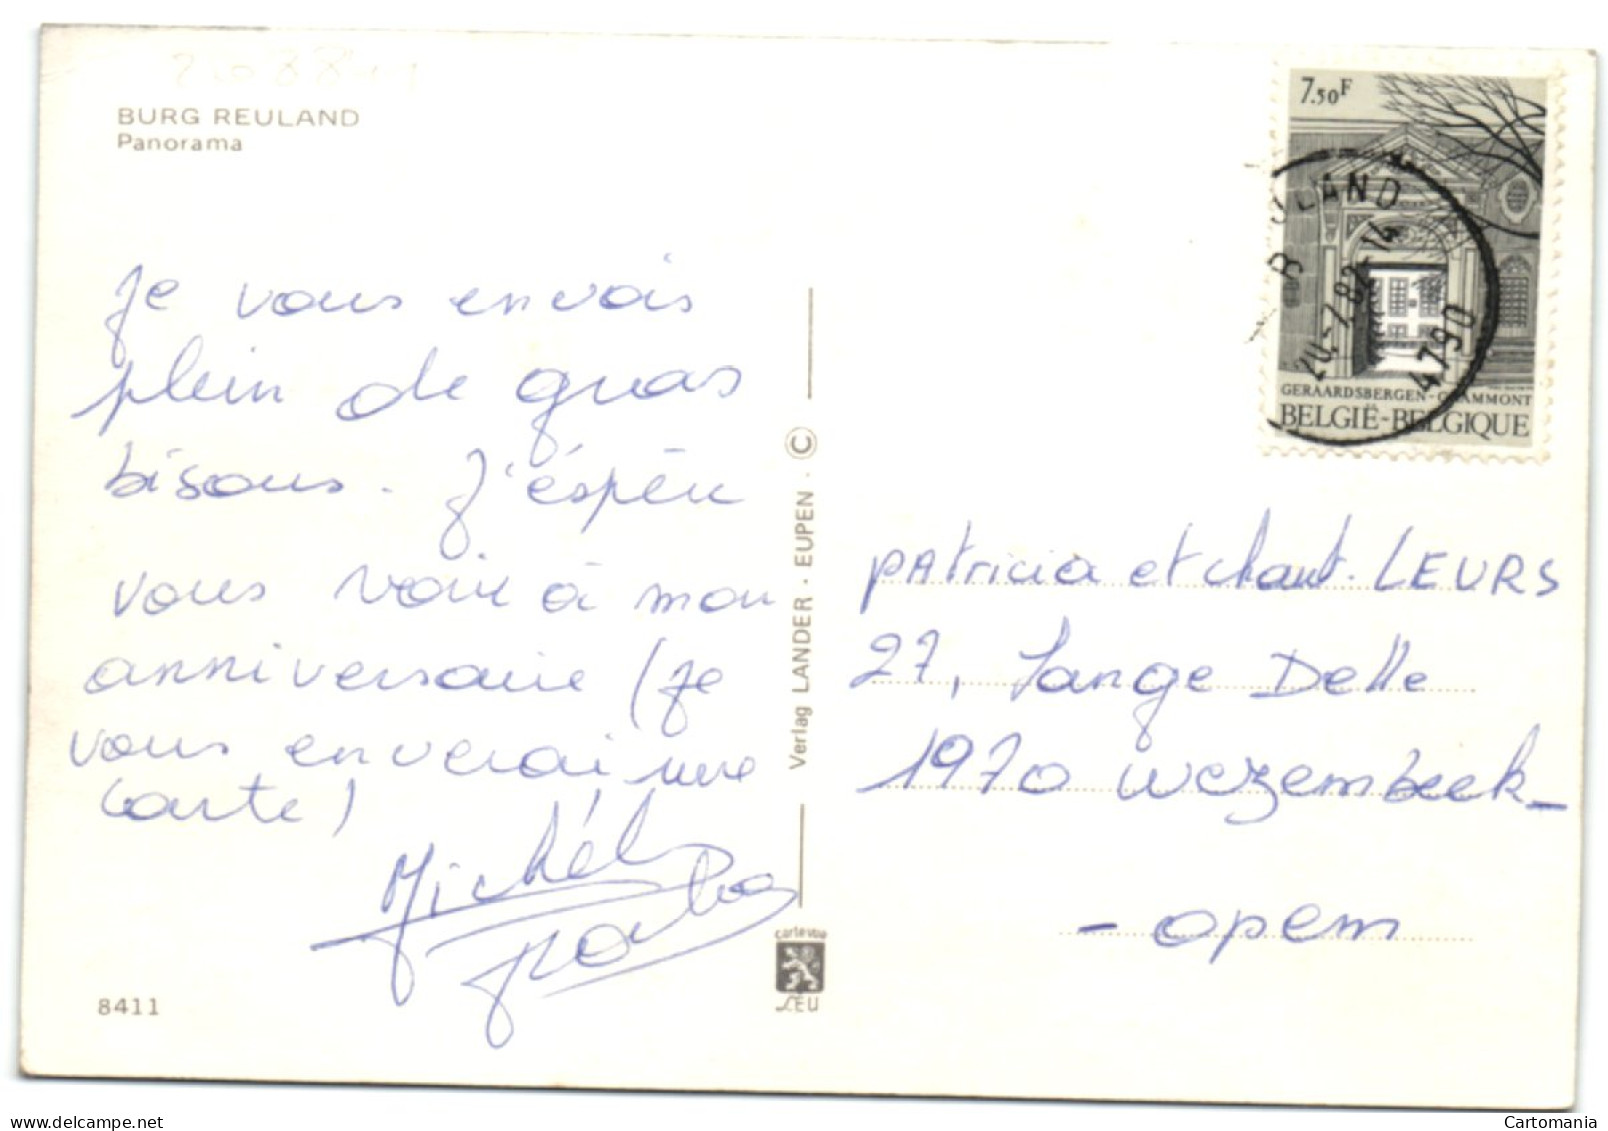 BURG REULAND
Panorama
7.50F
R ULAND
20.-7.82-14
4790
GERAARDSBERGEN-GRAMMONT
BELGIË-BELGIQUE
Je vous envois
plein de gros
bisous. J'éspère
vous voir à mon
anniversaire (je
vous enverai une
carte)
Michel
Verlag LANDER · EUPEN · ©
patricia et chant. LEURS
27, Lange Delle
1970 wezembeek_
- opem
cartevue
LEU
8411
https://www.delcampe.net
Cartomania